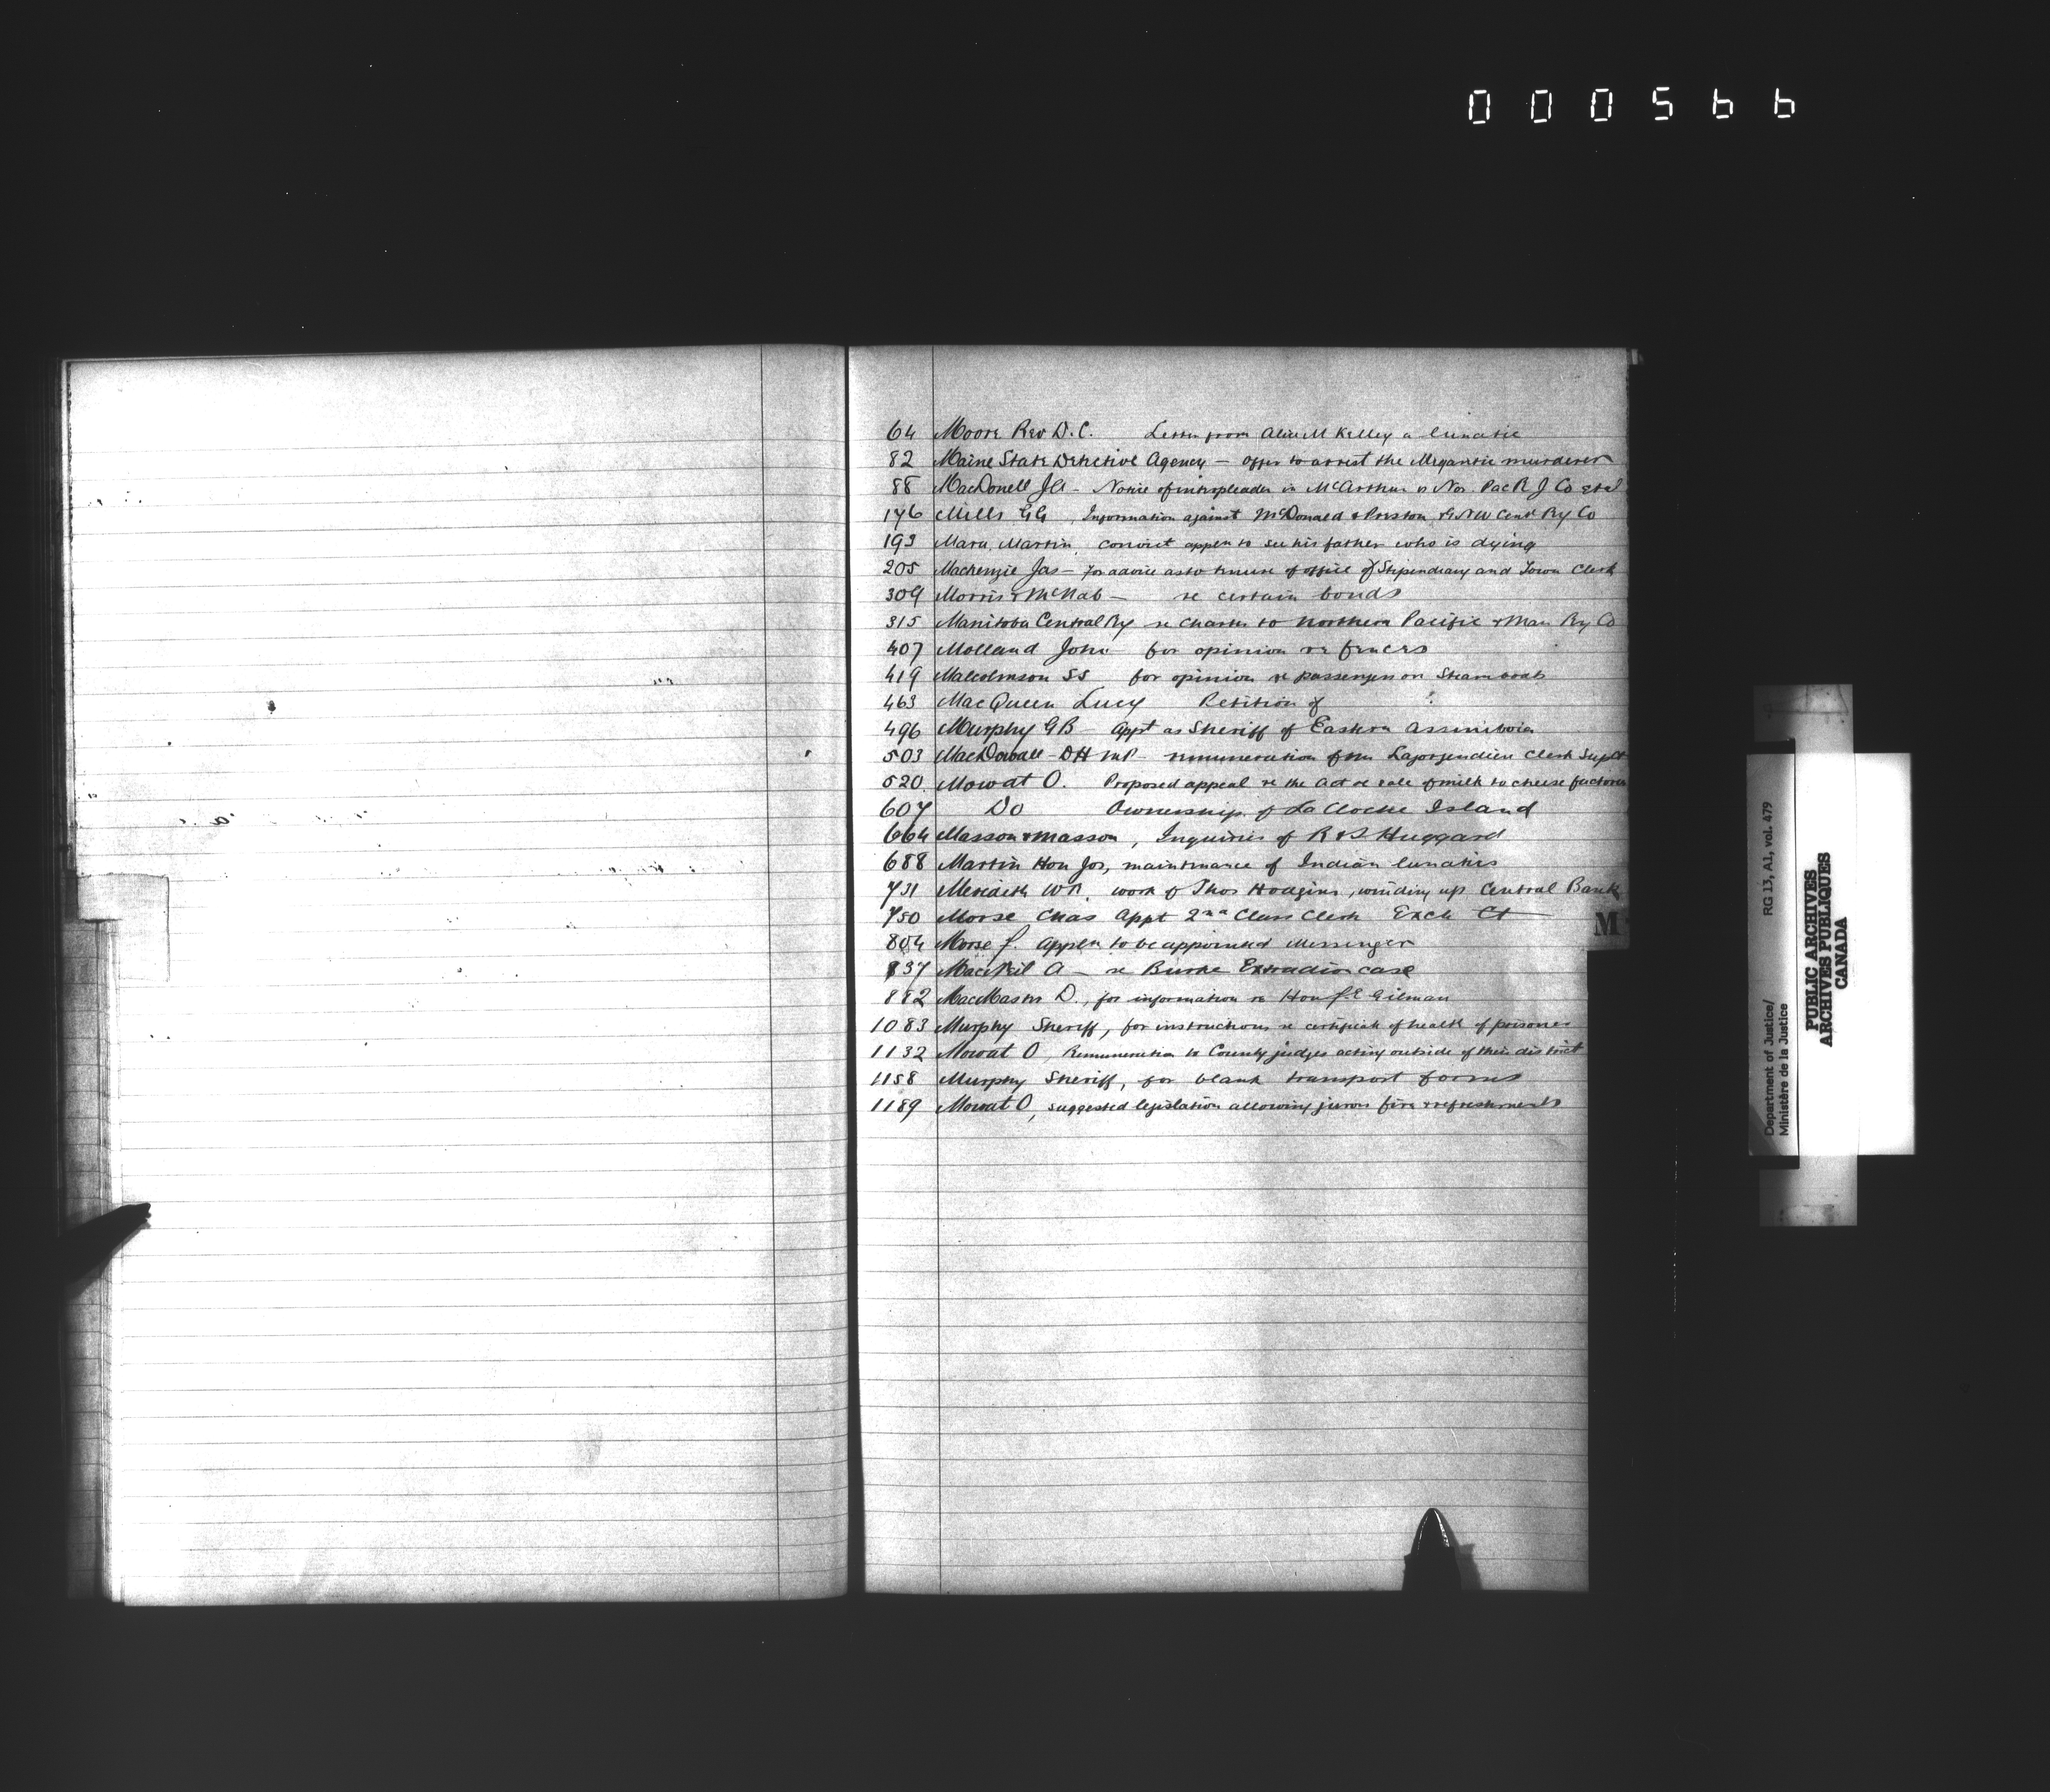 000566
64 Moore Rev D.C. Letter from Alice M Kelley a lunatic
82 Maine State Detective Agency – offer to arrest the Megantic murderer
88 MacDonell J A – Notice of interpleader in McArthur v Nor. Pac R J Co et al
146 Mills GG, Information against McDonald & Preston, Gt NW Cent Ry Co
193 Mara, Martin, convict appln to see his father who is dying
205 Mackenzie Jas – for advice as to tenure of office of Stipendiary and Town Clerk
309 Morris & McNab – re certain bonds
315 Manitoba Central Ry re charter to Northern Pacific & Man Ry Co
407 Molland John – for opinion re fences
419 Malcolmson SS for opinion re passengers on Steamboats
463 MacQueen Lucy Petition of
496 Murphy GB – Appt as Sheriff of Eastern Assiniboia
503 MacDowall – DH MP – remuneration of Mr Clerk Sup Ct
520. Mowat O. Proposed appeal re the Act re sale of milk to cheese factories
607 Do Ownership of La Cloche Island
664 Masson & Masson, Inquiries of R & S Huggard
688 Martin Hon Jos, maintenance of Indian lunatics
731 Meredith WR. work of Thos Hodgins, winding up Central Bank
750 Morse Chas Appt 2nd Class Clerk Exch Ct
M
804 Morse J. Appln to be appointed Messenger
837 MacNeil A – re Burke Extradion case
882 MacMaster D., for information re Hon J E Gilman
1083 Murphy Sheriff, for instructions re certificate of health of prisoner
1132 Mowat O, Remuneration to County judges acting outside of their district
1158 Murphy Sheriff, for blank transport forms
1189 Mowat O, suggested legislation allowing jurors fire & refreshments
Department of Justice/
Ministère de la Justice
RG 13, A1, vol. 479
PUBLIC ARCHIVES
ARCHIVES PUBLIQUES
CANADA